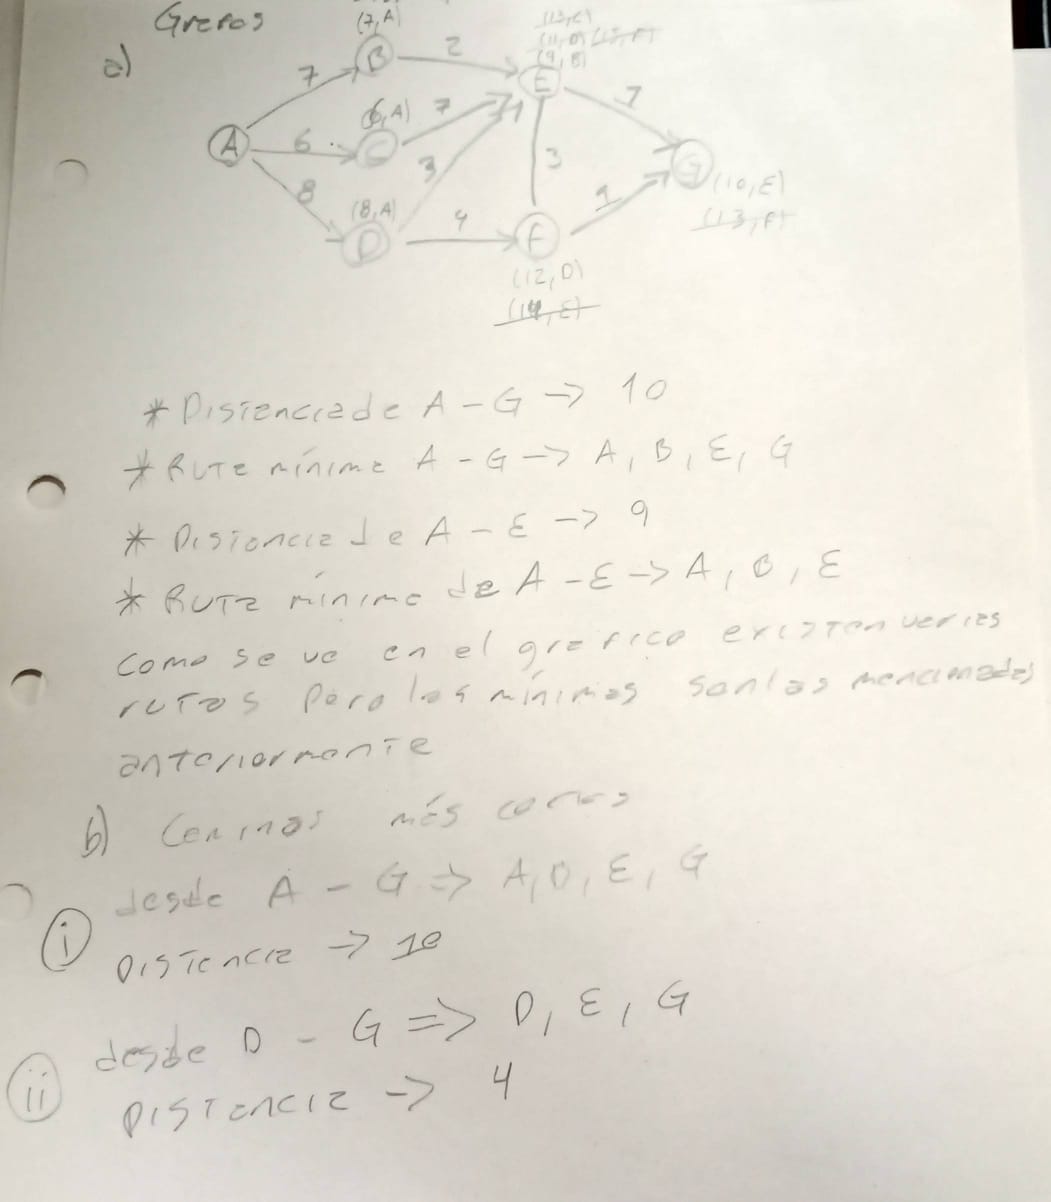 Grafos
a)
(7,A)
(13,C)
(11,D) (15,F)
(9,B)
B
2
E
7
7
(6,A)
7
A
6
C
3
3
G
(10,E)
(13,F)
8
(8,A)
4
9
D
F
(12,D)
(14,E)
* Distancia de A - G -> 10
* Ruta mínima A - G -> A, B, E, G
* Distancia de A - E -> 9
* Ruta mínima de A - E -> A, B, E
Como se ve en el grafico existen varias
rutas pero las mínimas son las mencionadas
anteriormente
b) Caminos más cortos
desde A - G => A, B, E, G
i
Distancia -> 10
desde D - G => D, E, G
ii
Distancia -> 4